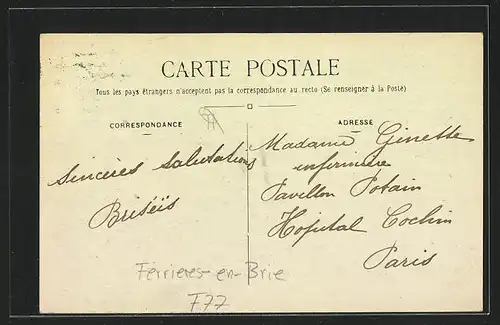 CARTE POSTALE
Tous les pays étrangers n'acceptent pas la correspondance au recto (Se renseigner à la Poste)
CORRESPONDANCE
Sincères Salutations
Briséïs
ADRESSE
Madame Ginette
infirmière
Pavillon Potain
Hopital Cochin
Paris
Ferrieres-en-Brie
F77